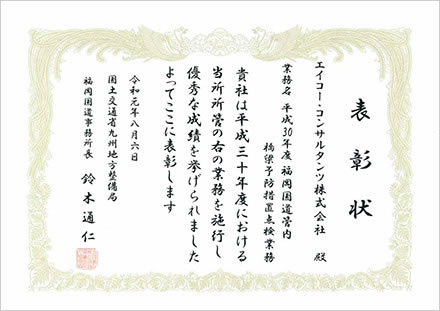 表彰状
エイコー・コンサルタンツ株式会社 殿
業務名 平成30年度 福岡国道管内
橋梁予防措置点検業務
貴社は平成三十年度における
当所所管の右の業務を施行し
優秀な成績を挙げられました
よってここに表彰します
令和元年八月六日
国土交通省九州地方整備局
福岡国道事務所長 鈴木通仁